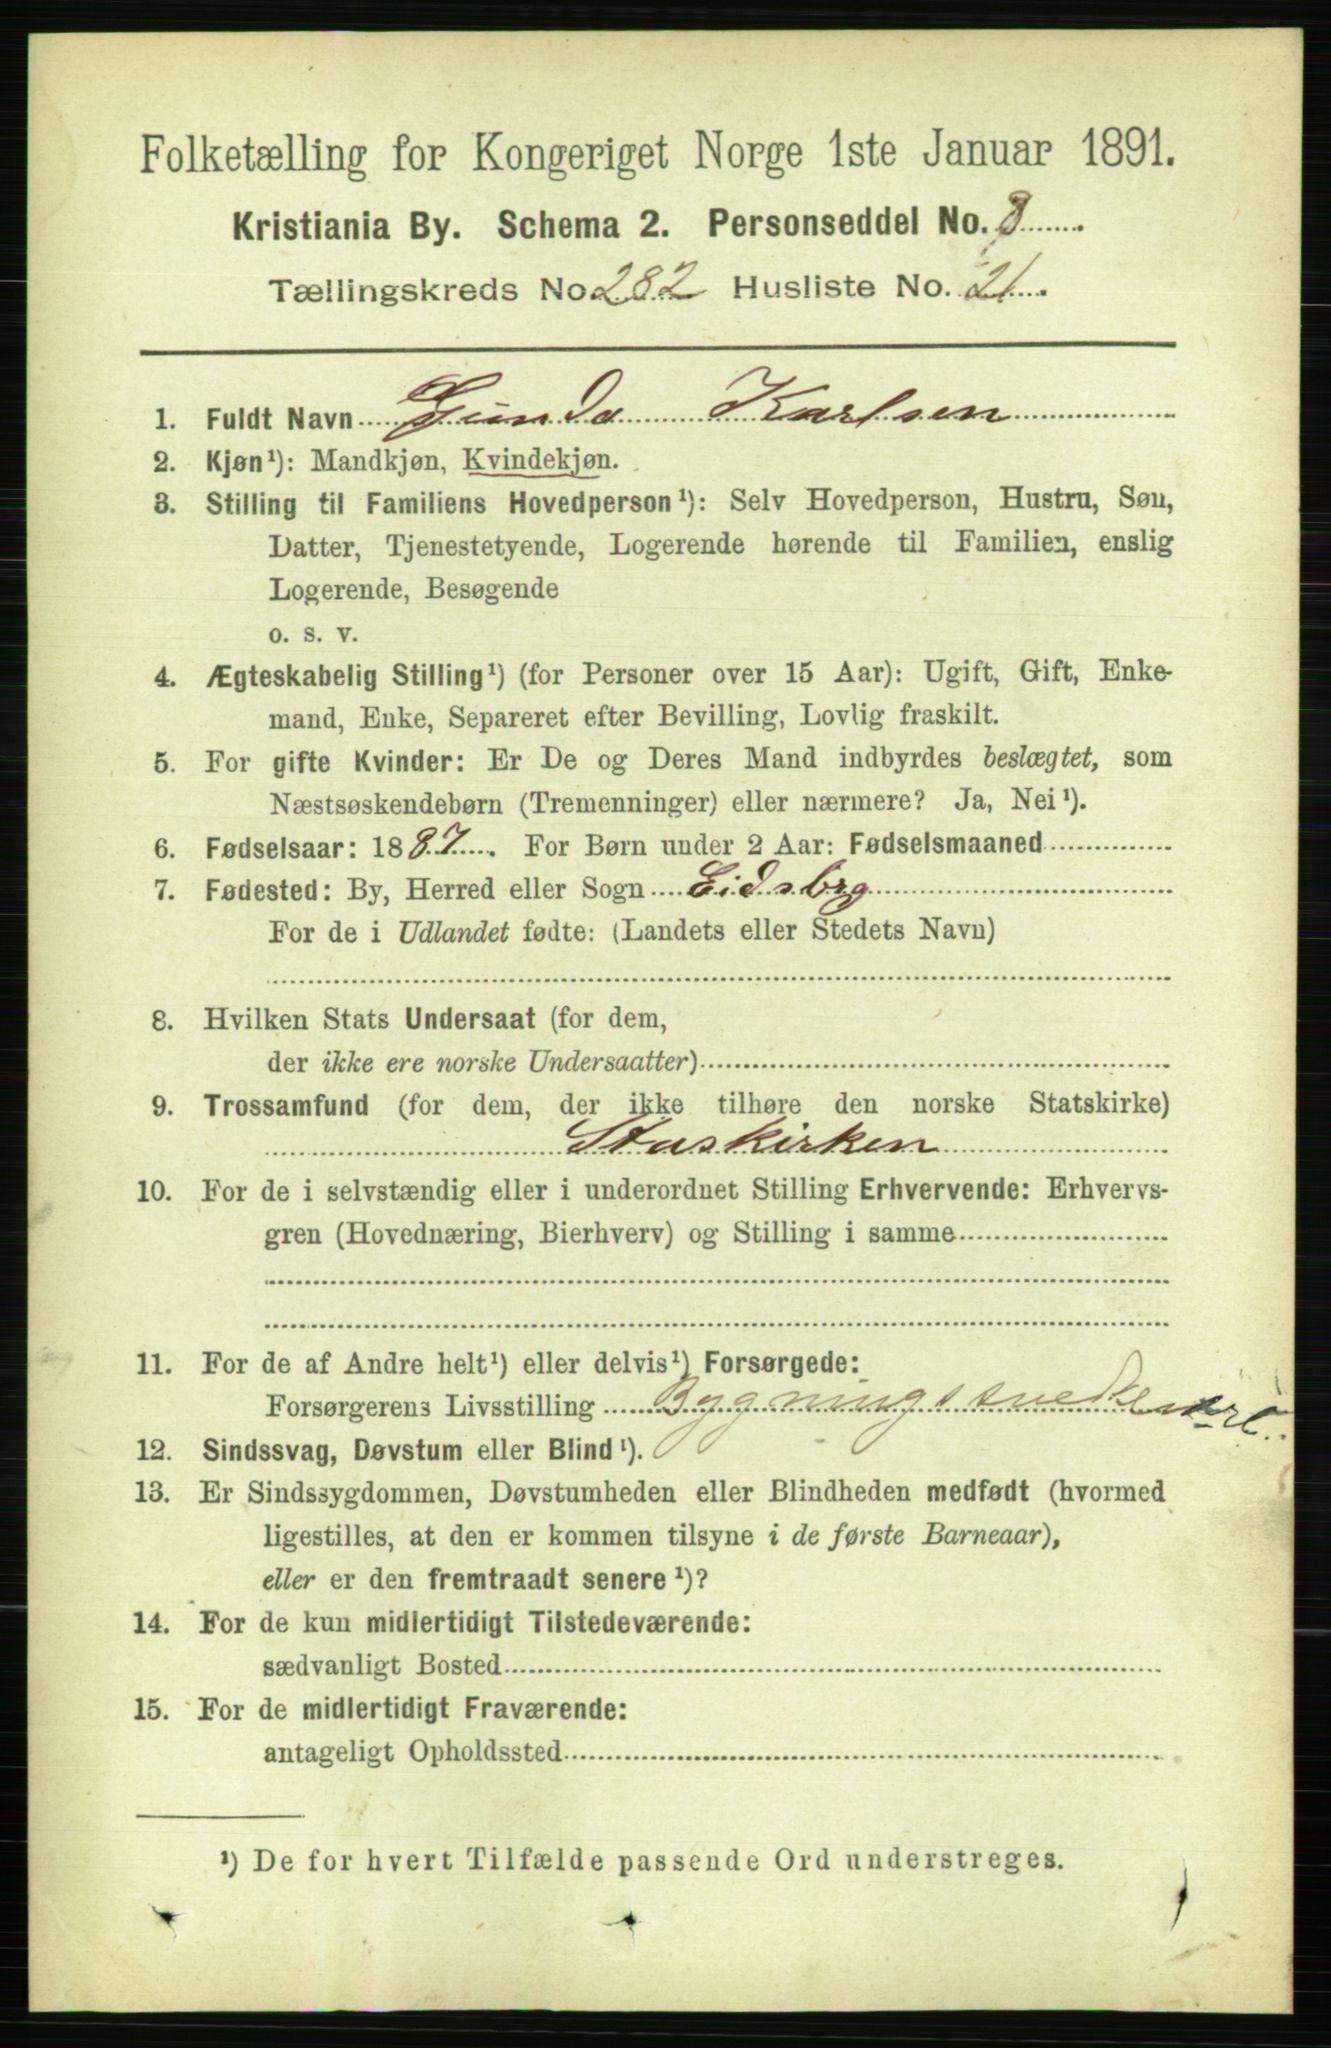 Folketælling for Kongeriget Norge 1ste Januar 1891.
Kristiania By. Schema 2. Personseddel No. 8
Tællingskreds No. 282 Husliste No. 21
1. Fuldt Navn Gunda Karlsen
2. Kjøn¹): Mandkjøn, Kvindekjøn.
3. Stilling til Familiens Hovedperson¹): Selv Hovedperson, Hustru, Søn,
Datter, Tjenestetyende, Logerende hørende til Familien, enslig
Logerende, Besøgende
o. s. v.
4. Ægteskabelig Stilling¹) (for Personer over 15 Aar): Ugift, Gift, Enke-
mand, Enke, Separeret efter Bevilling, Lovlig fraskilt.
5. For gifte Kvinder: Er De og Deres Mand indbyrdes beslægtet, som
Næstsøskendebørn (Tremenninger) eller nærmere? Ja, Nei¹).
6. Fødselsaar: 1887. For Børn under 2 Aar: Fødselsmaaned
7. Fødested: By, Herred eller Sogn Eidsbrg
For de i Udlandet fødte: (Landets eller Stedets Navn)
8. Hvilken Stats Undersaat (for dem,
der ikke ere norske Undersaatter)
9. Trossamfund (for dem, der ikke tilhøre den norske Statskirke)
Staskirken
10. For de i selvstændig eller i underordnet Stilling Erhvervende: Erhvervs-
gren (Hovednæring, Bierhverv) og Stilling i samme
11. For de af Andre helt¹) eller delvis¹) Forsørgede:
Forsørgerens Livsstilling
12. Sindssvag, Døvstum eller Blind¹).
13. Er Sindssygdommen, Døvstumheden eller Blindheden medfødt (hvormed
ligestilles, at den er kommen tilsyne i de første Barneaar),
eller er den fremtraadt senere¹)?
14. For de kun midlertidigt Tilstedeværende:
sædvanligt Bosted
15. For de midlertidigt Fraværende:
antageligt Opholdssted
¹) De for hvert Tilfælde passende Ord understreges.